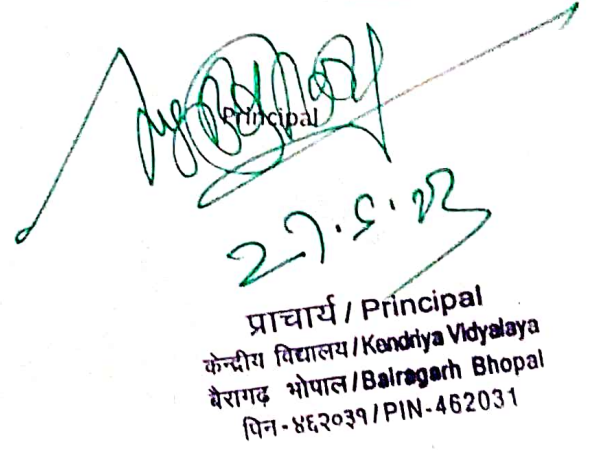 Principal
27.5.23
प्राचार्य / Principal
केन्द्रीय विद्यालय / Kendriya Vidyalaya
बैरागढ़ भोपाल / Bairagarh Bhopal
पिन - ४६२०३१ / PIN - 462031